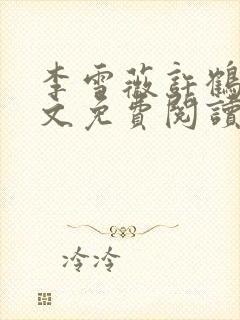 李雪薇許鶴
文免費閱讀
冷冷